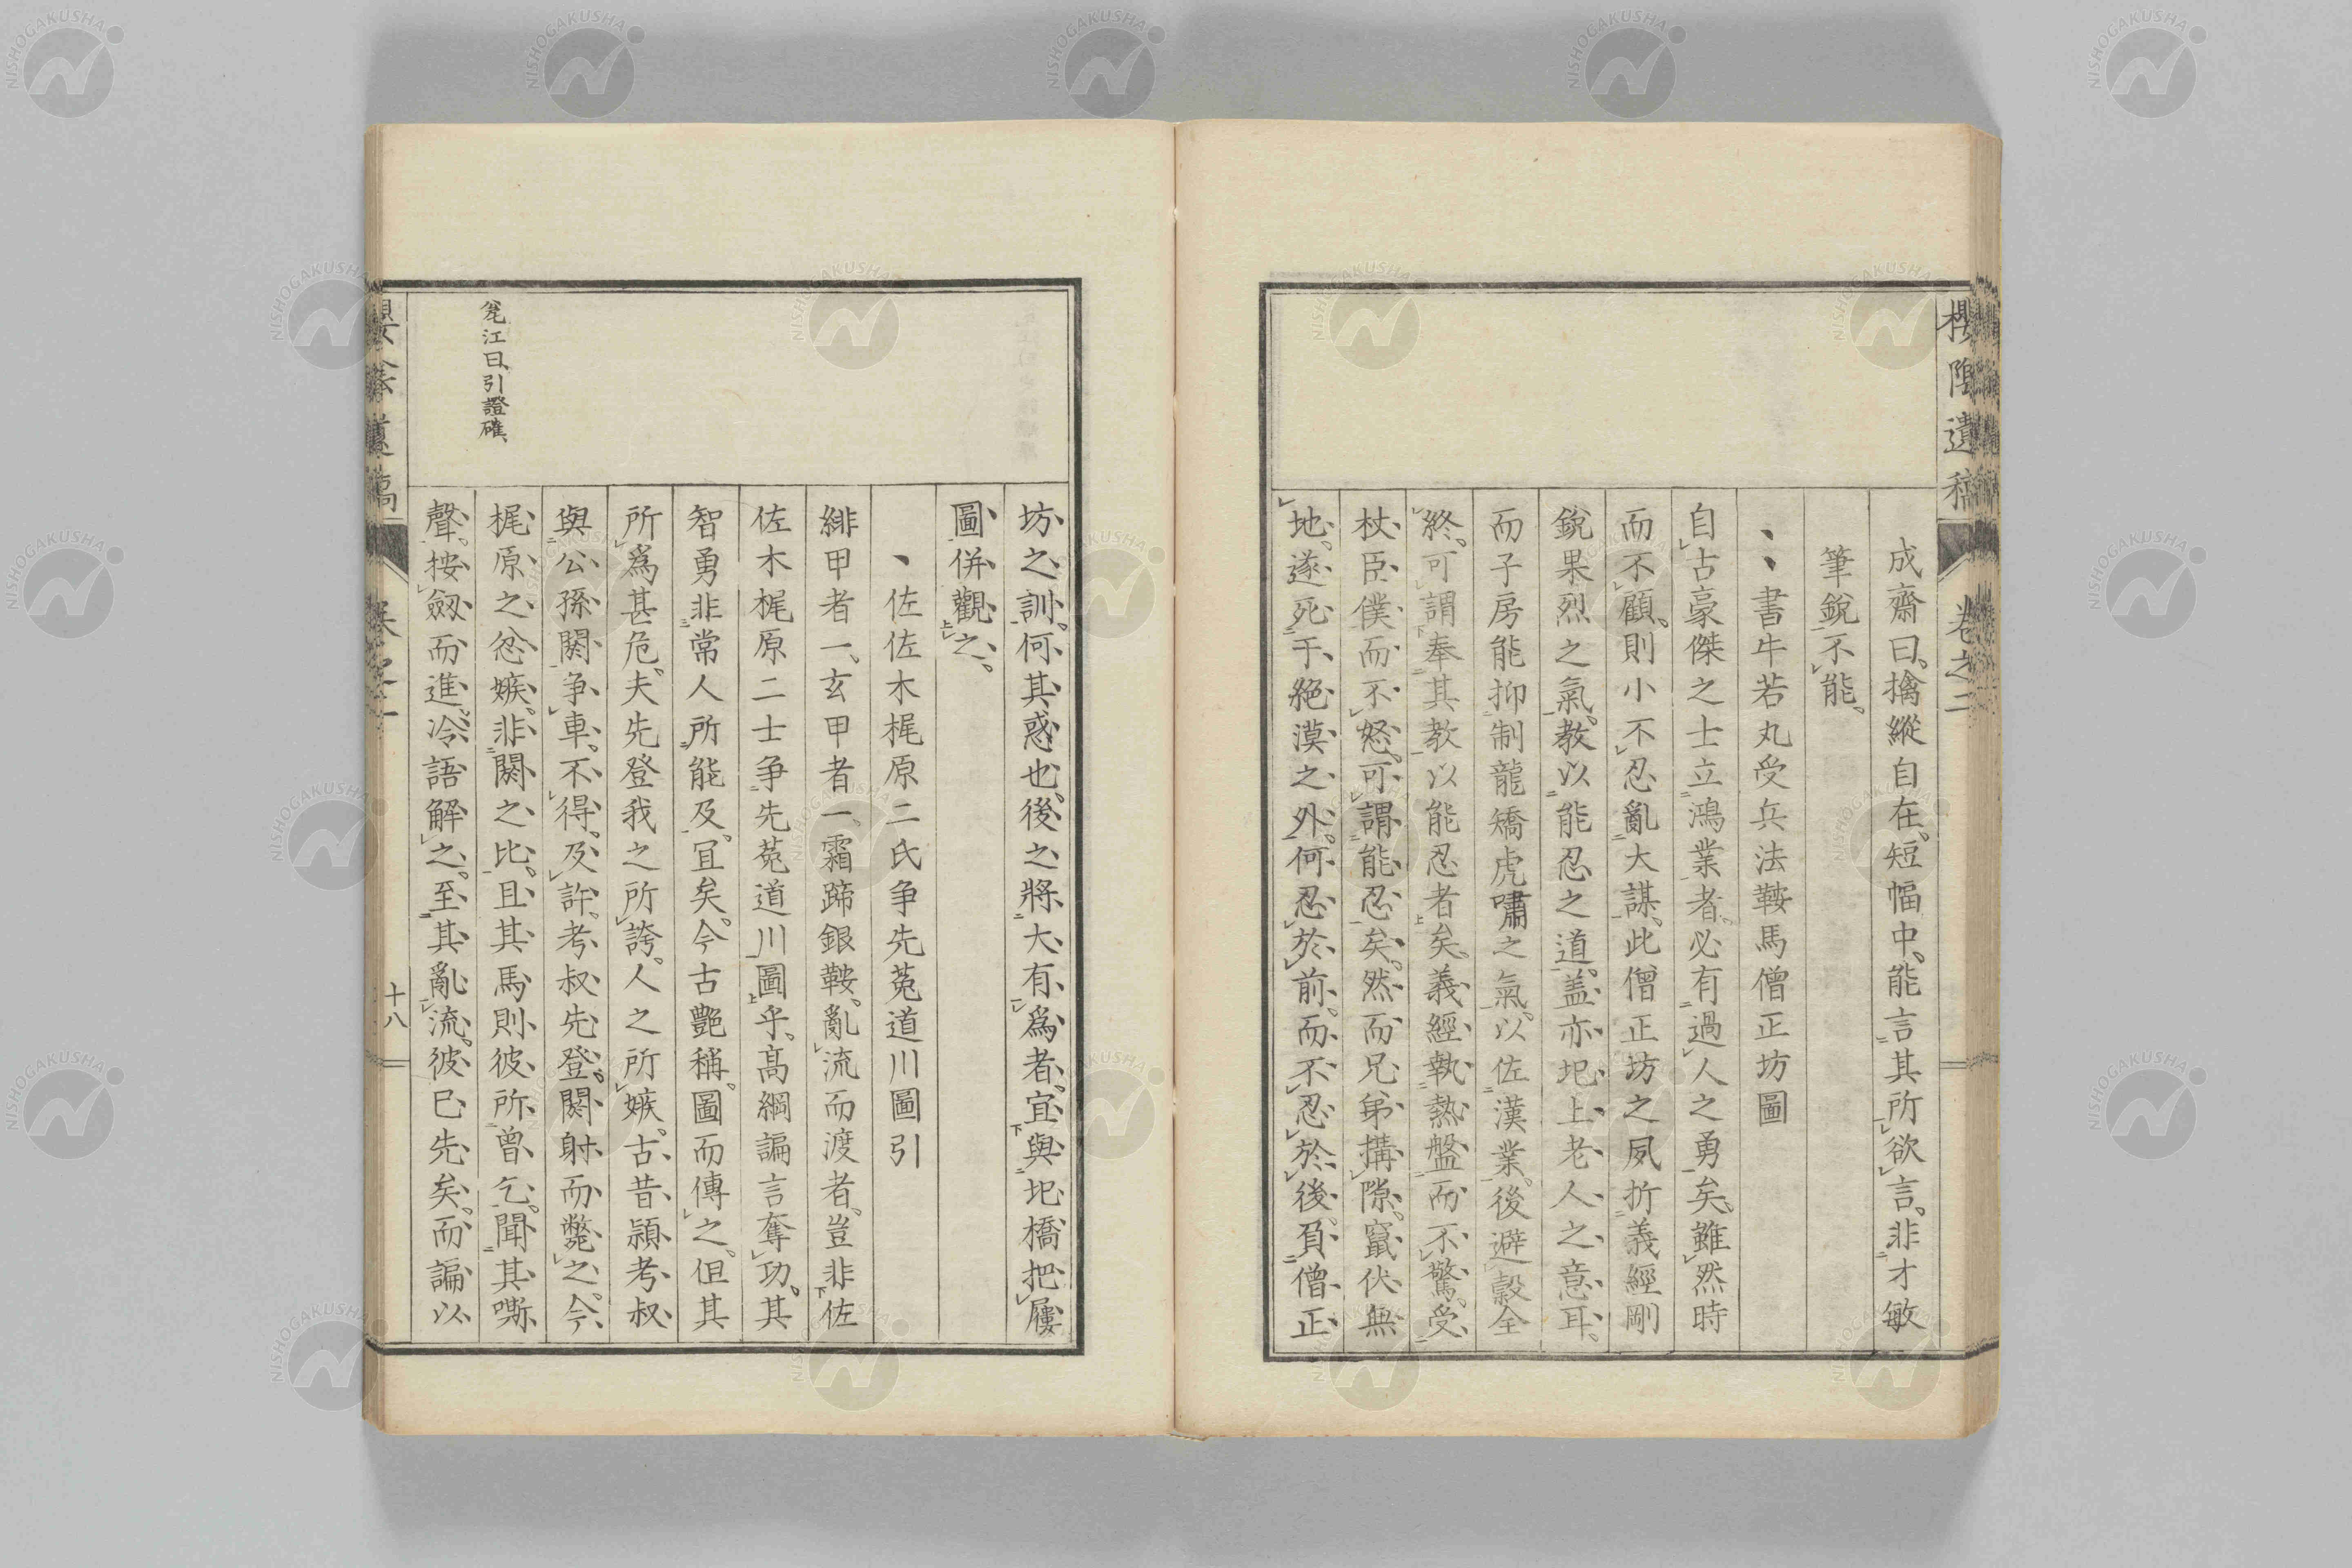 櫻陰遺稿 卷之二
成齋曰。擒縱自在。短幅中、能言其所欲言。非才敏
筆銳不能。
、、書牛若丸受兵法鞍馬僧正坊圖
自古豪傑之士立鴻業者。必有過人之勇矣。雖然時
而不顧。則小不忍亂大謀。此僧正坊之夙折義經剛
銳果烈之氣。教以能忍之道。蓋亦圯上老人之意耳。
而子房能抑制龍矯虎嘯之氣。以佐漢業。後避穀全
終。可謂奉其教以能忍者矣。義經執熱盤而不驚。受
杖臣僕而不怒。可謂能忍矣。然而兄弟搆隙。竄伏無
地。遂死于絕漠之外。何忍於前。而不忍於後。負僧正
坊之訓。何其惑也。後之將大有爲者。宜與圯橋把屨
圖併觀之。
、佐佐木梶原二氏爭先菟道川圖引
緋甲者一、玄甲者一、霜蹄銀鞍。亂流而渡者。豈非佐
佐木梶原二士爭先菟道川圖乎。高綱諞言奪功。其
智勇非常人所能及。宜矣。今古艷稱。圖而傳之。但其
所爲甚危。夫先登我之所誇。人之所嫉。古昔頴考叔
與公孫閼爭車。不得。及許。考叔先登。閼射而斃之。今
梶原之忿嫉。非閼之比。且其馬則彼所曾乞。聞其嘶
聲。按劔而進。冷語解之。至其亂流。彼已先矣。而諞以
窕江曰、引證確、
十八